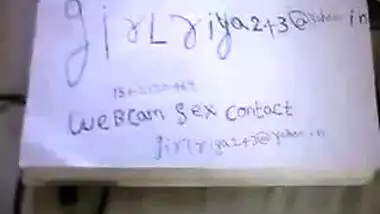 girlriya2+3@yahoo.in
WEBCam Sex Contact
girlriya2+3@yahoo.in